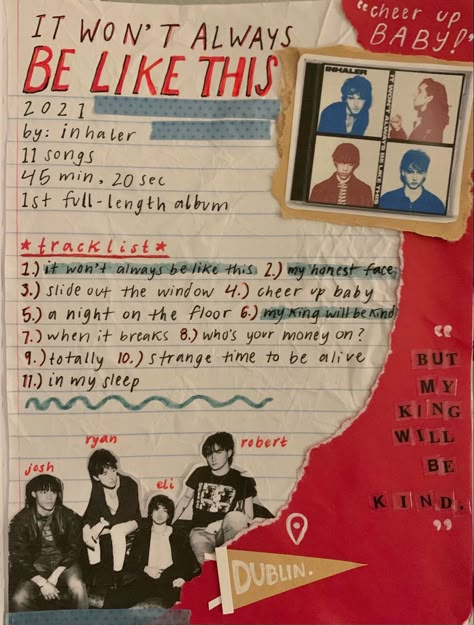 IT WON'T ALWAYS
BE LIKE THIS
"cheer up
BABY!"
INHALER
IT WON'T ALWAYS BE LIKE THIS
2021
by: inhaler
11 songs
45 min, 20 sec
1st full-length album
*tracklist*
1.) it won't always be like this 2.) my honest face
3.) slide out the window 4.) cheer up baby
5.) a night on the floor 6.) my king will be kind
7.) when it breaks 8.) who's your money on?
9.) totally 10.) strange time to be alive
11.) in my sleep
"
BUT
MY
KING
WILL
BE
KIND.
"
josh
ryan
eli
robert
DUBLIN.